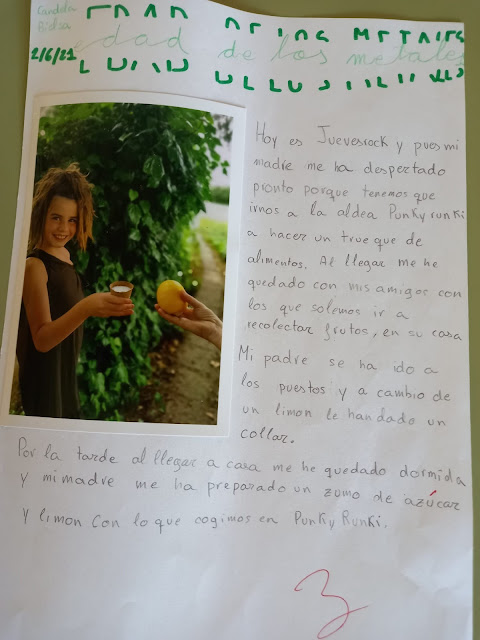 Candela
Bielsa
2/6/21
edad de los metales
Hoy es Juevesrock y pues mi
madre me ha despertado
pronto porque tenemos que
irnos a la aldea Punky runki
a hacer un trueque de
alimentos. Al llegar me he
quedado con mis amigos con
los que solemos ir a
recolectar frutos, en su casa
Mi padre se ha ido a
los puestos y a cambio de
un limon le han dado un
collar.
Por la tarde al llegar a casa me he quedado dormida
y mi madre me ha preparado un zumo de azúcar
y limon con lo que cogimos en Punky Runki.